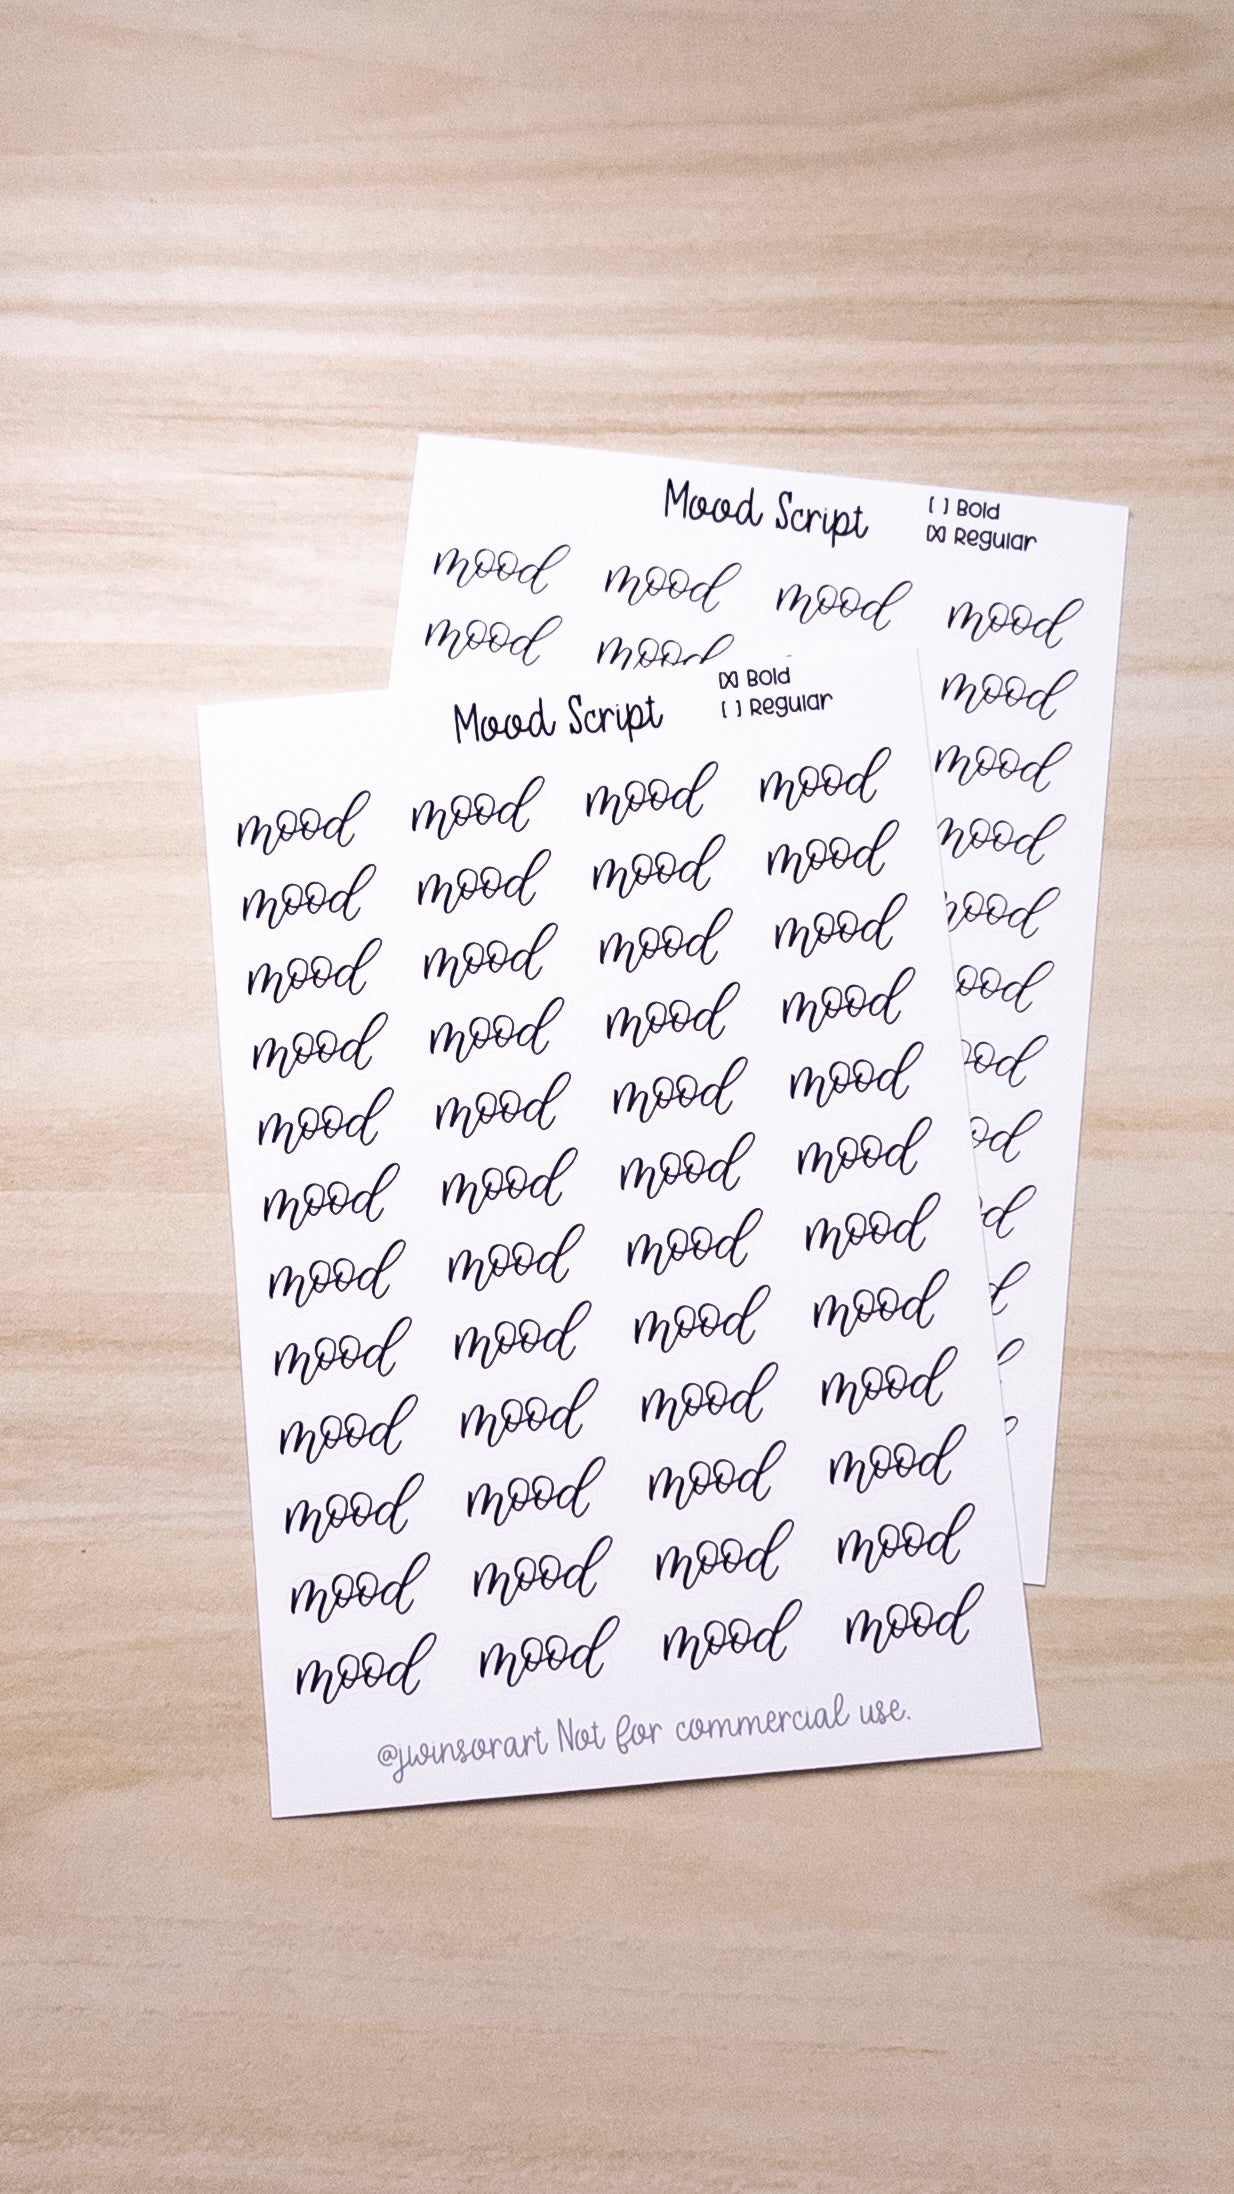 Mood Script
[ ] Bold
[X] Regular
mood mood mood mood
mood mood mood
mood
mood
Mood Script
[X] Bold
[ ] Regular
mood mood mood mood
mood mood mood mood
mood mood mood mood
mood mood mood mood
mood mood mood mood
mood mood mood mood
mood mood mood mood
mood mood mood mood
mood mood mood mood
mood mood mood mood
mood mood mood mood
mood mood mood mood
@jwinsorart Not for commercial use.